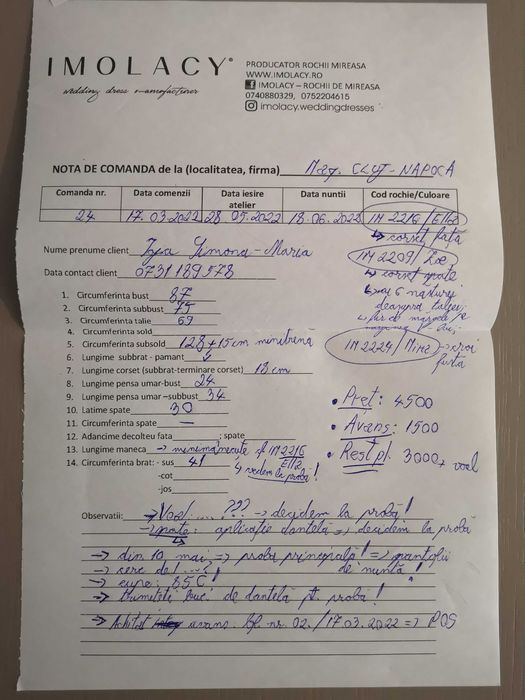 IMOLACY®
wedding dress manufactiner
PRODUCATOR ROCHII MIREASA
WWW.IMOLACY.RO
IMOLACY – ROCHII DE MIREASA
0740880329, 0752204615
imolacy.weddingdresses
NOTA DE COMANDA de la (localitatea, firma) Mag. CLUJ-NAPOCA
Comanda nr. Data comenzii Data iesire atelier Data nuntii Cod rochie/Culoare
24. 17.03.2022 28.05.2022 18.06.2022 IM 2216/Eliz
↳ corset fata
Nume prenume client Simona-Maria
IM 2209/Zoe
↳ corset spate
Data contact client 0731189578
nasturi
deasupra taliei
1. Circumferinta bust 87
2. Circumferinta subbust 75
3. Circumferinta talie 69
4. Circumferinta sold
5. Circumferinta subsold 128+15cm
IM 2224/ → croi
fusta
6. Lungime subbrat - pamant
7. Lungime corset (subbrat-terminare corset) 18 cm
8. Lungime pensa umar-bust 24
9. Lungime pensa umar –subbust 34
10. Latime spate 30
11. Circumferinta spate —
12. Adancime decolteu fata ; spate
13. Lungime maneca → IM2216
14. Circumferinta brat: - sus 41
↳ vedem la probă!
-cot
-jos
• Preț: 4500
• Avans: 1500
• Rest pl. 3000 + voal
Observatii: → Voal.....??? → decidem la probă!
→ spate: aplicație dantelă => decidem la probă
→ din 10 mai => proba principală! => pantofii
de nuntă!
→ cerc de 1
→ cupe: 85C!
→ buc. de dantelă pt. probă!
→ Achitat avans. bf. nr. 02./17.03.2022 => POS